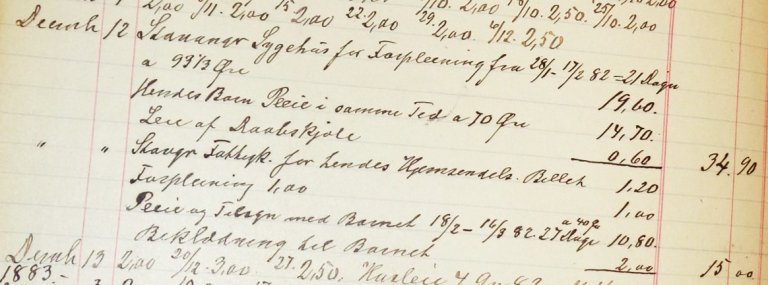 2,00 /11. 2,00 15 2,00 22 2,00 29 2,00 6/12. 2,50 /10. 2,00 /10. 2,50. 25/10. 2,00
Decmb 12 Stavangr Sygehus for Forpleening fra 28/1-17/2 82 = 21 Dagn
a 93 1/3 Øre 19,60.
Hendes Barn Pleie i samme Tid a 70 Øre 14,70.
Leie af Daabskjole 0,60 34.90
" " Stavgr Fattigk. for hendes Hjemsendels. Billet 1,20
Forpleening 1,00 1,00
Pleie og Tilsyn med Barnet 18/2 - 16/3 82. 27 Dage a 40 ø 10,80.
Beklædning til Barnet 2,00 15 00
Decmb 13 2,00 20/12. 3,00. 27. 2,50. Husleie
1883.-